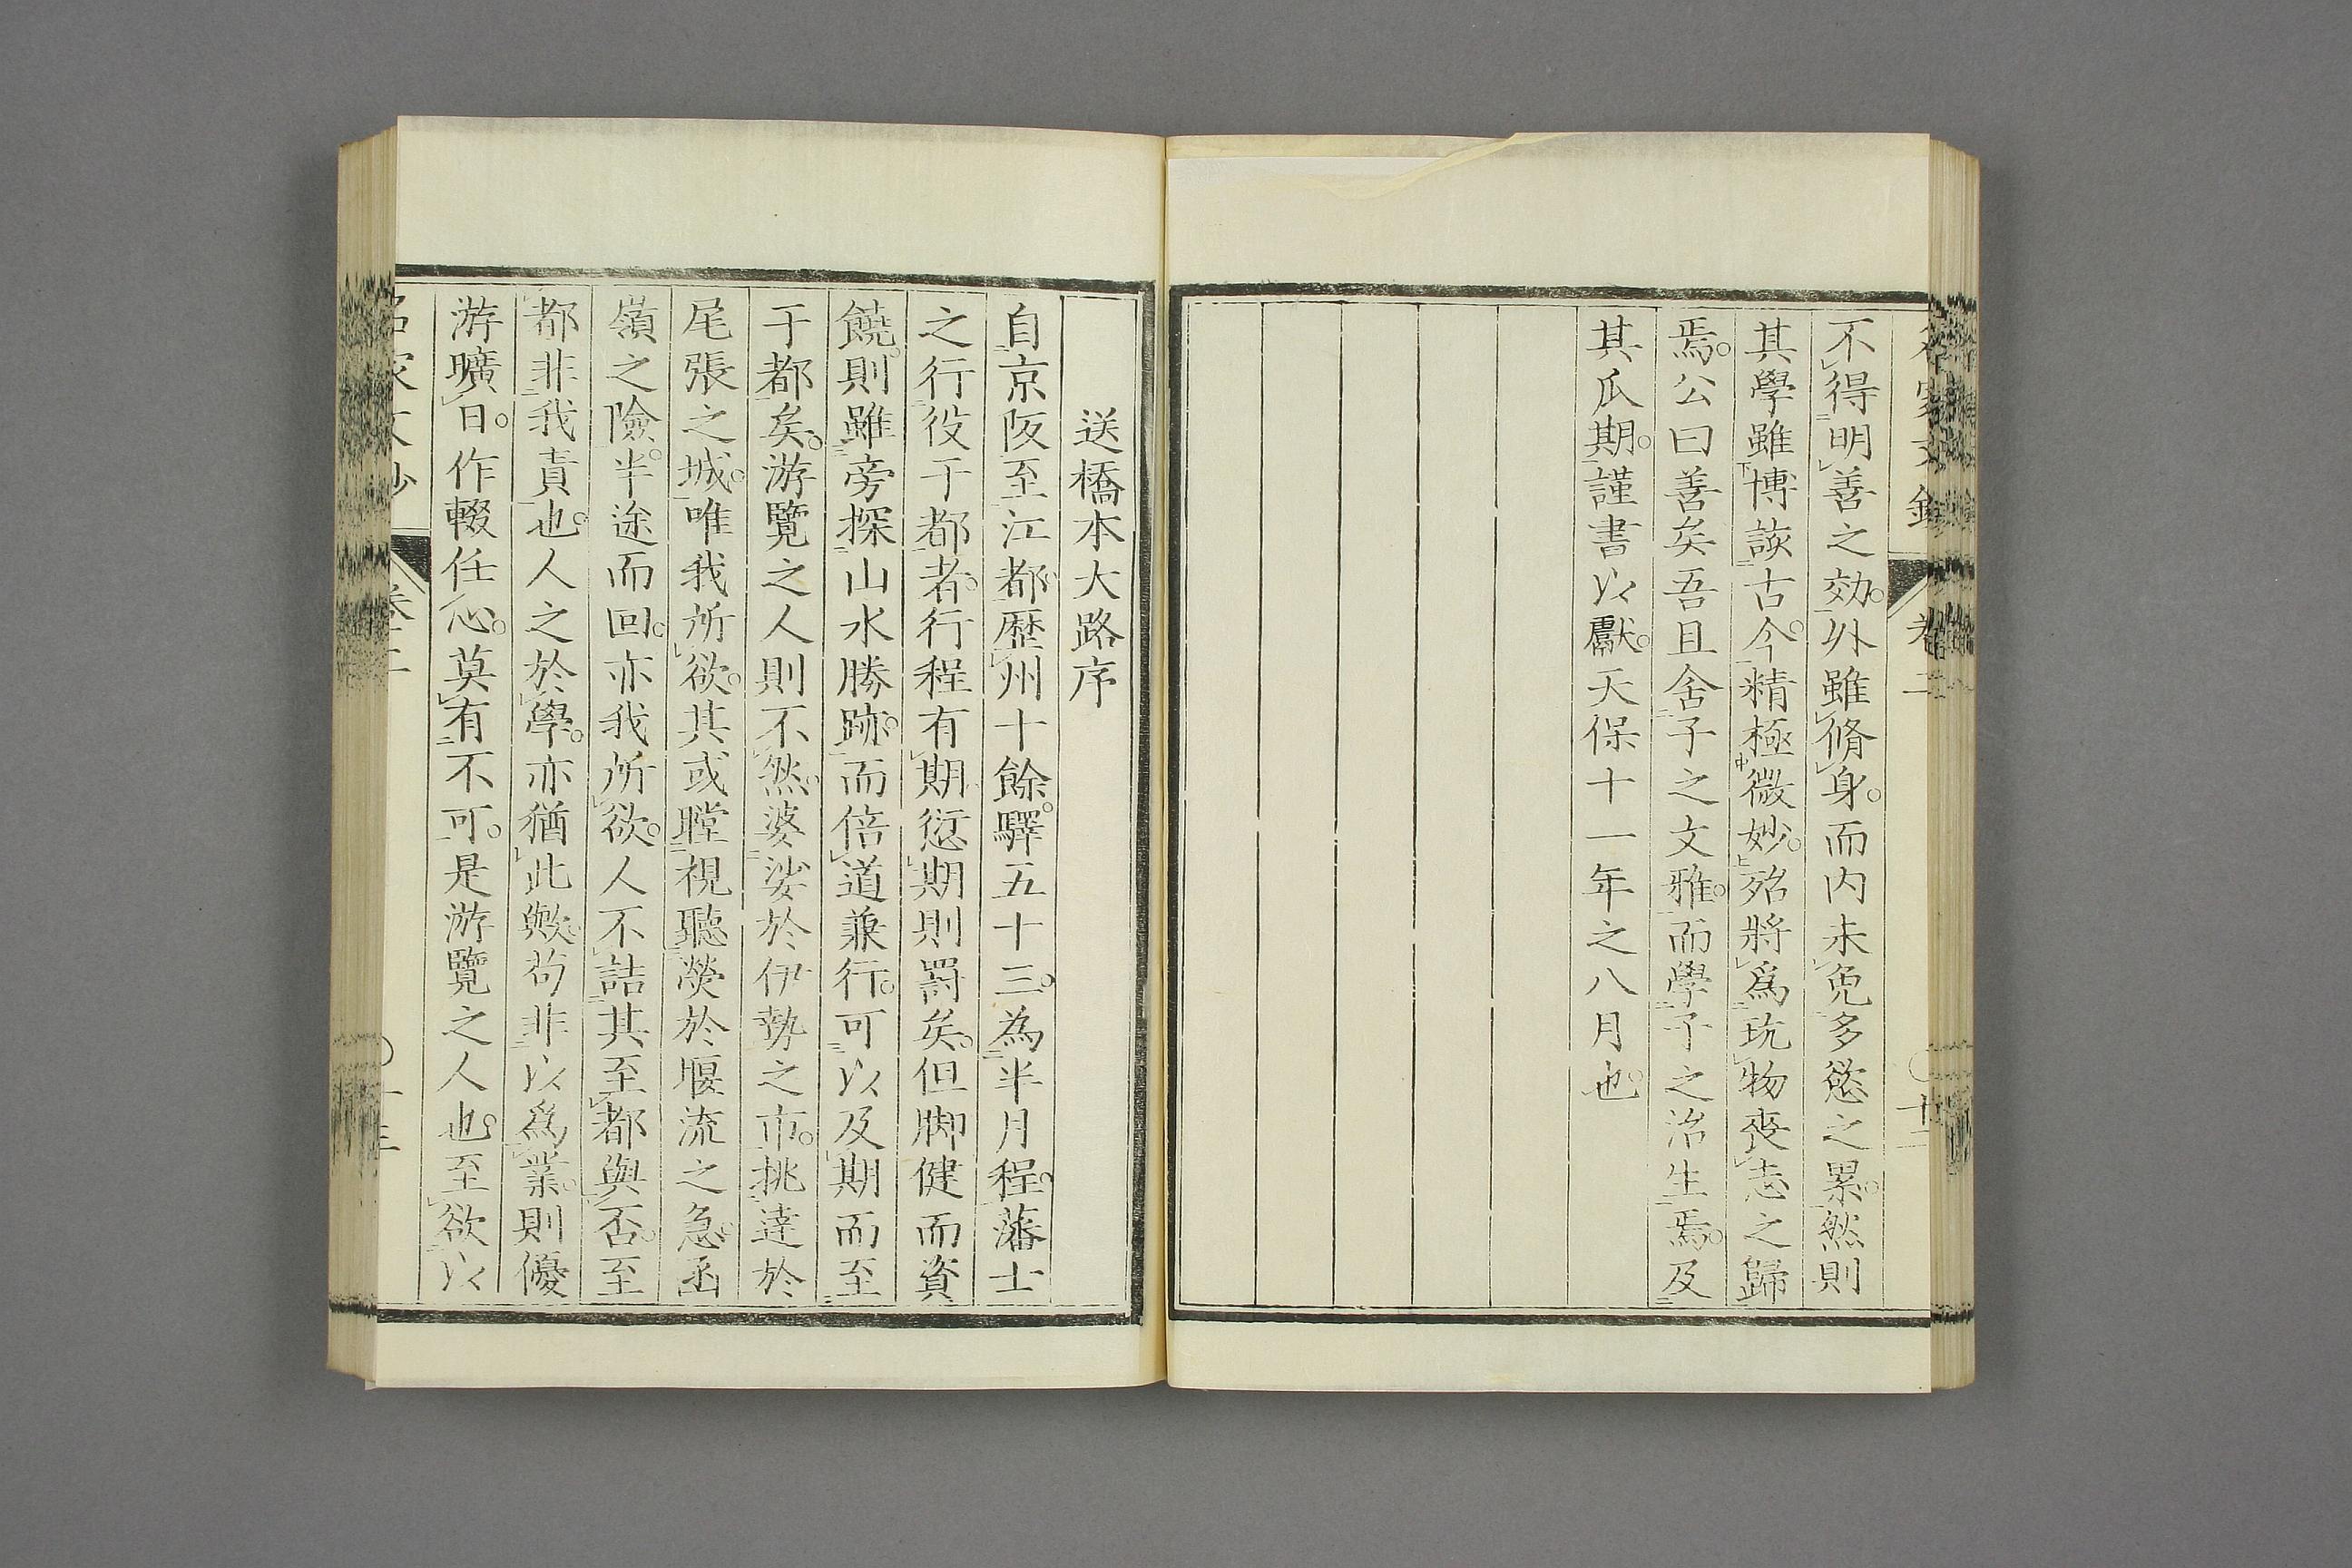 不得明善之效。外雖脩身。而内未免多慾之累。然則
其學雖博該古今。精極微妙。殆將爲玩物喪志之歸
焉。公曰善矣吾且舍子之文雅。而學子之治生焉。及
其瓜期。謹書以獻。天保十一年之八月也。
送橋本大路序
自京阪至江都。歷州十餘。驛五十三。為半月程。藩士
之行役于都者。行程有期。愆期則罰矣。但脚健而資
饒。則雖旁探山水勝跡。而倍道兼行。可以及期而至
于都矣。游覽之人則不然。婆娑於伊勢之市。挑達於
尾張之城。唯我所欲。其或瞠視聽熒於堰流之急。函
嶺之險。半途而回。亦我所欲。人不詰其至都與否。至
都非我責也。人之於學。亦猶此歟。苟非以爲業。則優
游曠日。作輟任心。莫有不可。是游覽之人也。至欲以
卷二